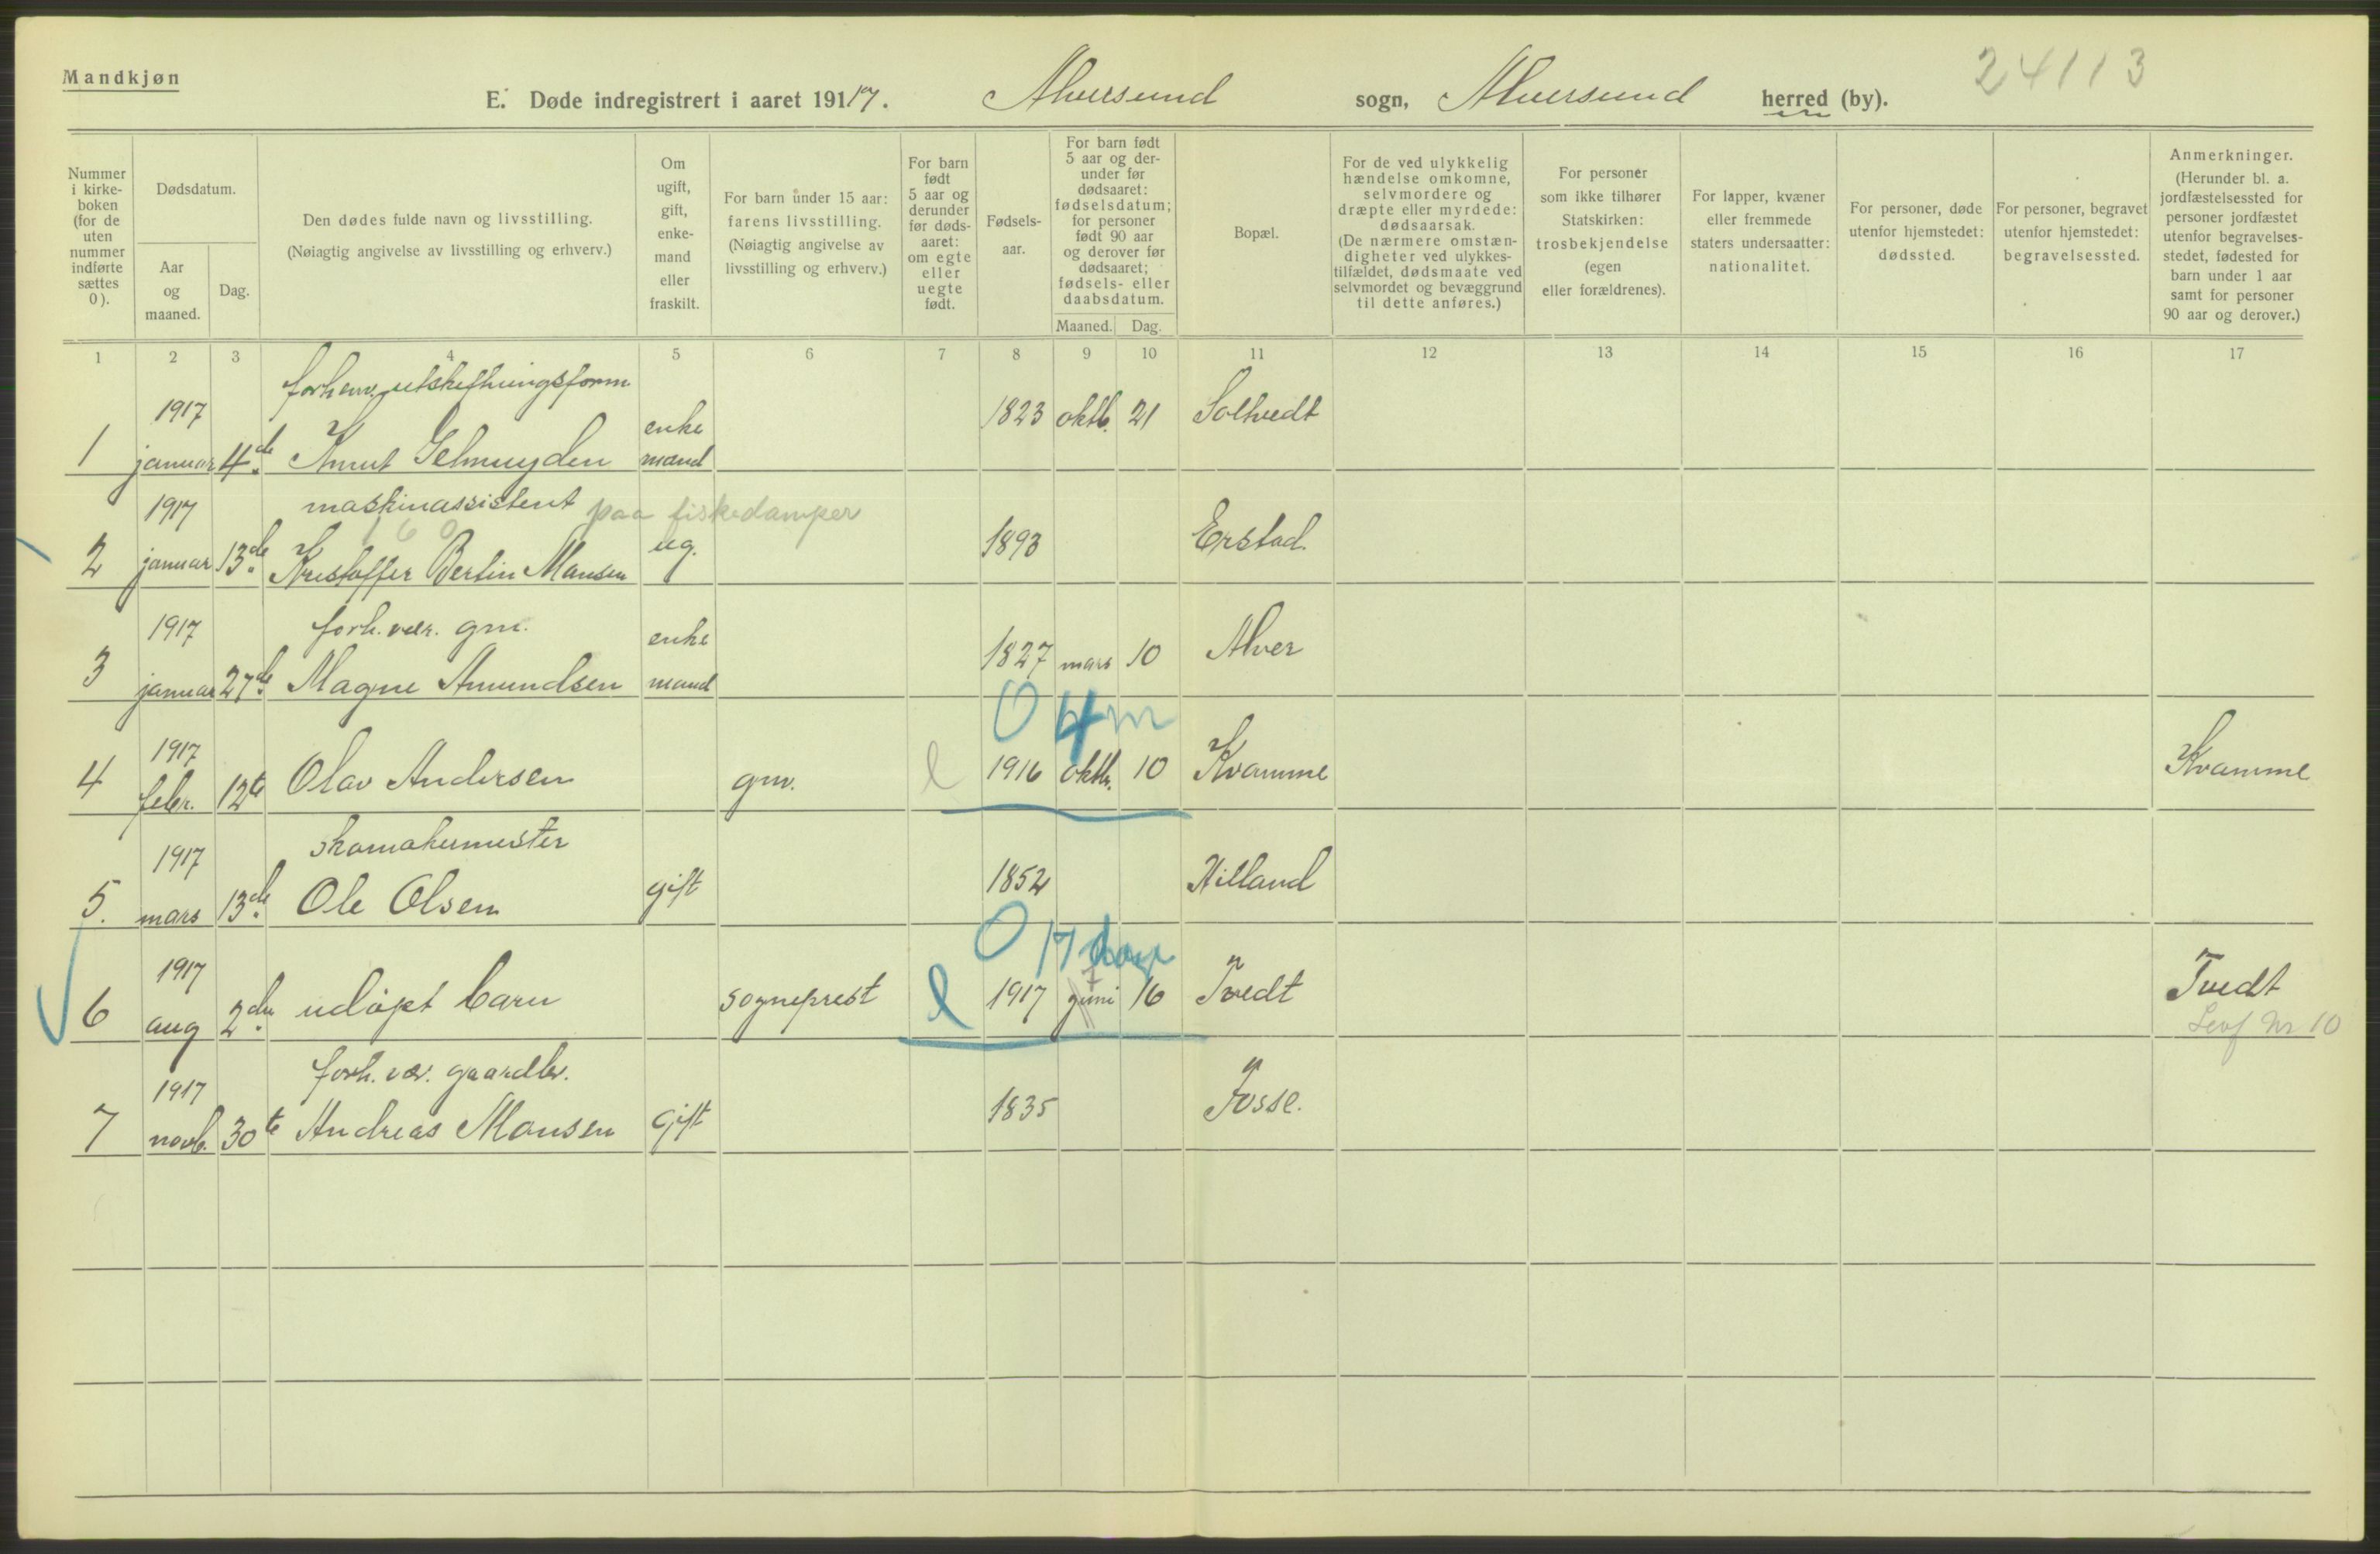 Mandkjøn
24113
E. Døde indregistrert i aaret 19117. Alversund sogn, Alversund herred (by).
Nummer i kirke- boken (for de uten nummer indførte sættes 0).
Dødsdatum.
Aar og maaned.
Dag.
Den dødes fulde navn og livsstilling.
(Nøiagtig angivelse av livsstilling og erhverv.)
Om ugift, gift, enke- mand eller fraskilt.
For barn under 15 aar: farens livsstilling. (Nøiagtig angivelse av livsstilling og erhverv.)
For barn født 5 aar og derunder før døds- aaret: om egte eller uegte født.
Fødsels- aar.
For barn født 5 aar og der- under før dødsaaret: fødselsdatum; for personer født 90 aar og derover før dødsaaret; fødsels- eller daabsdatum.
Maaned.
Dag.
Bopæl.
For de ved ulykkelig hændelse omkomne, selvmordere og dræpte eller myrdede: dødsaarsak. (De nærmere omstæn- digheter ved ulykkes- tilfældet, dødsmaate ved selvmordet og bevæggrund til dette anføres.)
For personer som ikke tilhører Statskirken: trosbekjendelse (egen eller forældrenes).
For lapper, kvæner eller fremmede staters undersaatter: nationalitet.
For personer, døde utenfor hjemstedet: dødssted.
For personer, begravet utenfor hjemstedet: begravelsessted.
Anmerkninger. (Herunder bl. a. jordfæstelsessted for personer jordfæstet utenfor begravelses- stedet, fødested for barn under 1 aar samt for personer 90 aar og derover.)
1 2 3 4 5 6 7 8 9 10 11 12 13 14 15 16 17
forhenv. utskiftningsform.
1917 enke 1823 oktb. 21 Soltvedt
1 januar 4de Knut Gelmuyden mand
1917 maskinassistent paa fiskedamper
160
2 januar 13de Kristoffer Bertin Monsen ug. 1893 Erstad.
1917 forh. vær. gm. enke
3 januar 27de Magne Amundsen mand 1827 mars 10 Alver
0 4m
1917
4 febr. 12te Olav Andersen gm. e 1916 oktb. 10 Kvamme Kvamme
1917 skomakermester
5. mars 13de Ole Olsen gift 1852 Hilland
0 17 dage
1917
6 aug 2den udøpt barn sogneprest e 1917 juni 16 Tvedt Tvedt
7
Levf Nr 10
1917 forh. vær. gaardbr.
7 novb. 30te Andreas Monsen Gift 1835 Fosse.